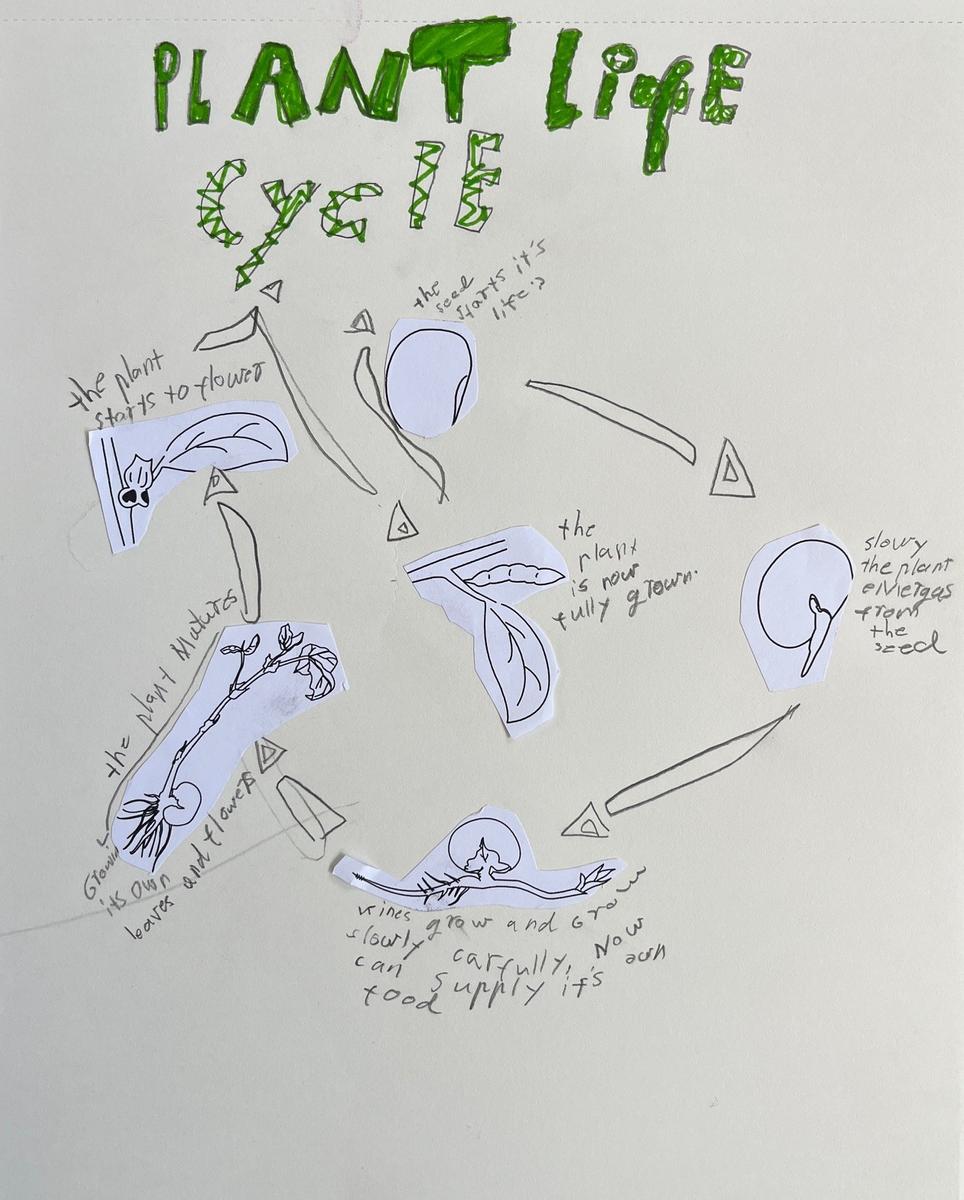 PLANT LiFE
CyclE
the
seed
starts it's
life:)
slowy
the plant
eMergas
from
the
seed
vines grow and Grow
slowly carfully, Now
can supply it's own
food
the plant Matures
Growing
its own
leaves and flowers
the plant
starts to flower
the
plant
is now
fully grown.